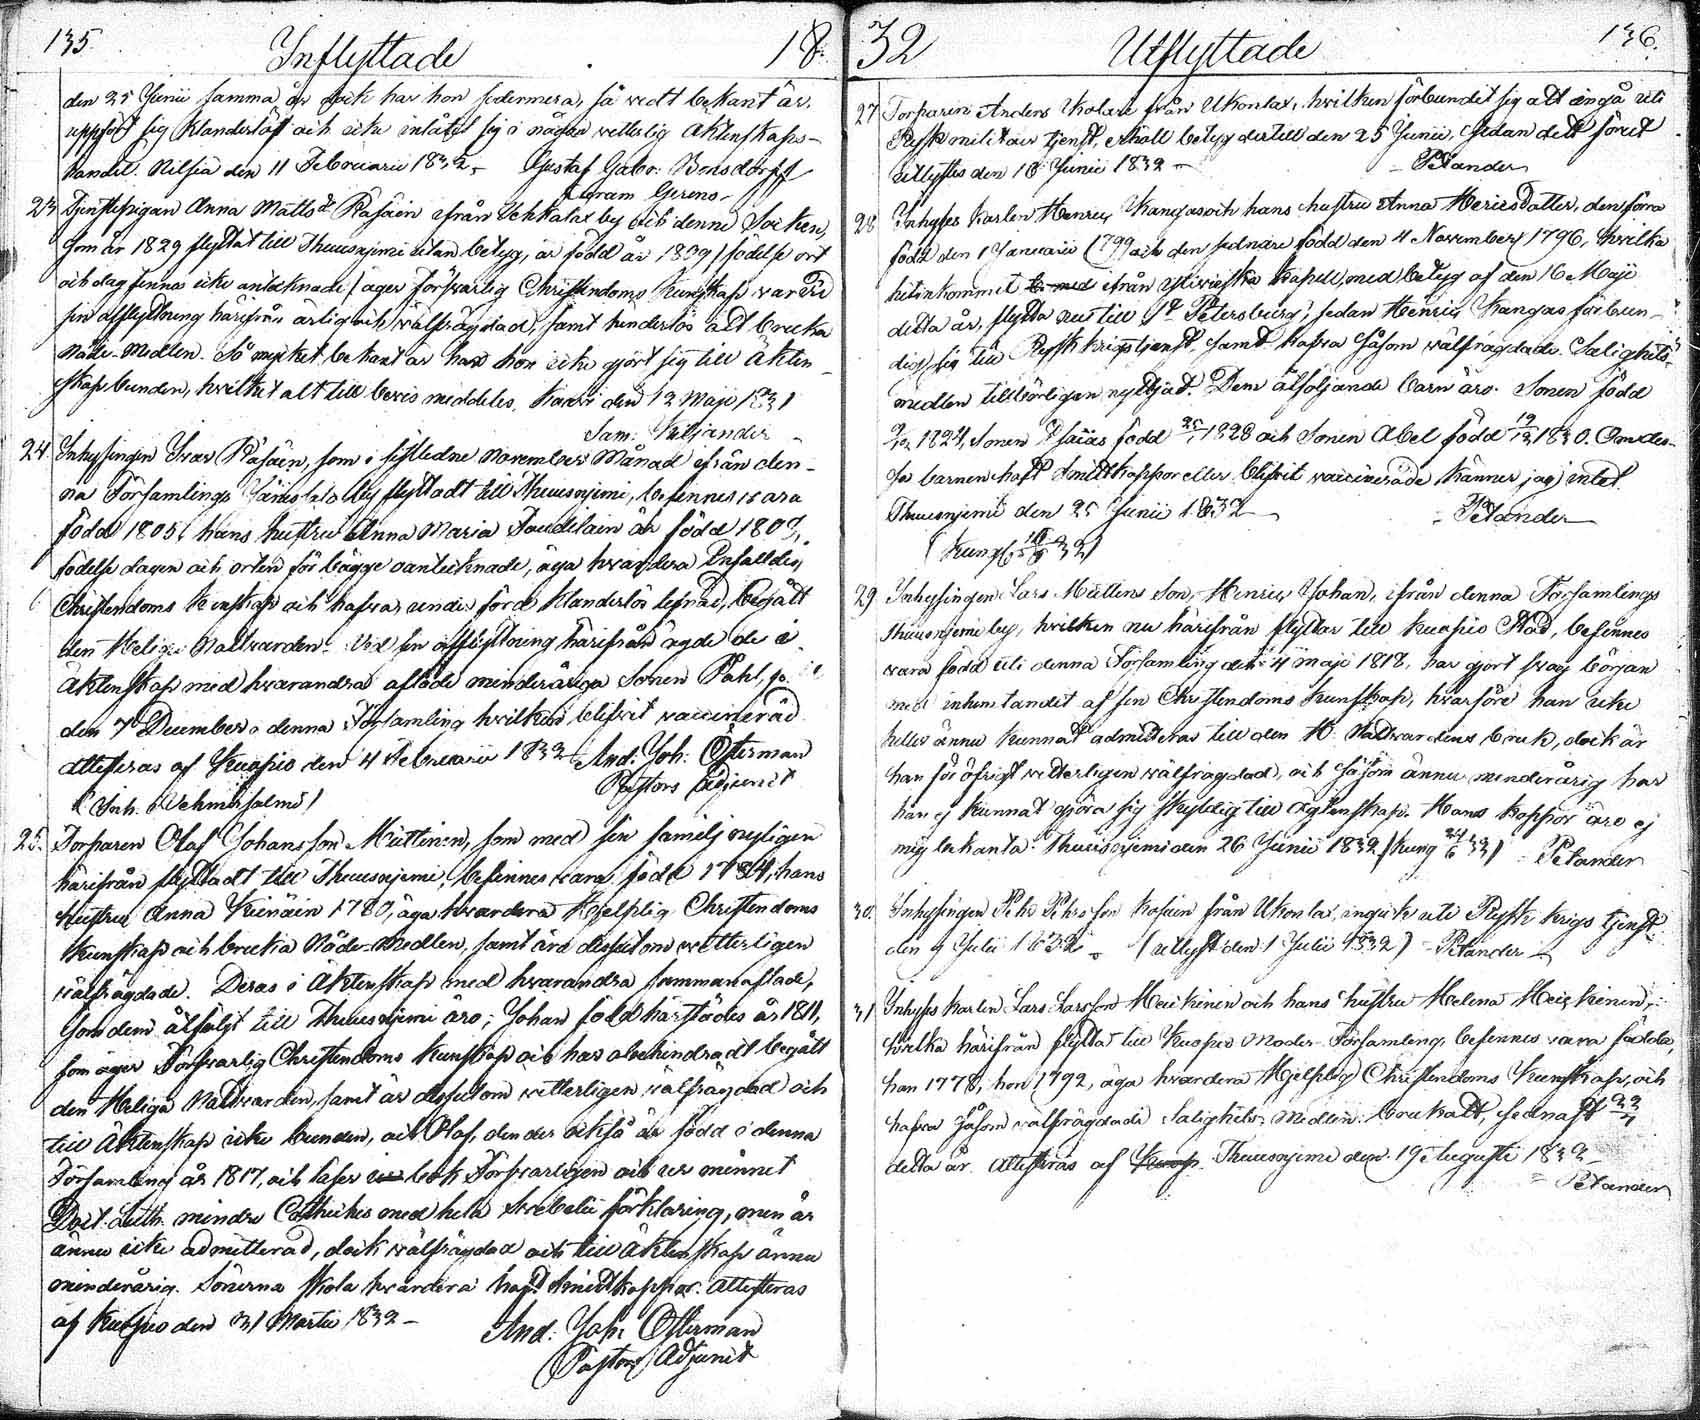 135 Inflyttade 18
den 25 Junii samma år dock har hon sedermera, så vidt bekant är,
uppfört sig klanderlöst och icke inlåtit sig i någon vetterlig Äktenskaps-
handel. Nilsia den 11 Februarii 1832. Gustaf Gabr. Bonsdorff
23 Tjenstepigan Anna Matts dr Räsäin ifrån Vehkalax by och denne Socken,
som år 1829 flyttat till Thuusnjemi utan betyg, är född år 1809 / födelse ort
och dag finnas icke antecknade / äger försvarlig Christendoms kunskap var vid
sin afflyttning härifrån ärlig och välfrägdad, samt hinderlös att bruka
Nåde-Medlen. Så mycket bekant är har hon icke gjort sig till äkten-
skap bunden, hvilket alt till bevis meddeles. den 12 Maji 1831
Sam:
24. Inhysingen Ivar Räsäin, som i sistledne November Månad ifrån den-
na Församlings by flyttadt till Thuusnjemi, befinnes vara
född 1805, hans hustru Anna Maria är född 1807,
födelse dagen och orten för bägge oantecknade, äga hvardera Enfalldig
Christendoms kunskap och hafva under förd klanderlös lefnad, begått
den Heliga Nattvarden. Vid sin afflyttning härifrån ägde de i
Äktenskap med hvarandra aflade minderåriga Sonen Pahl,
den 7 December i denna Församling hvilken blifvit vaccinerad
attesteras af Kuopio den 4 Februarii 1832 And: Joh: Österman
Pastors Adjunct
( Inh. Vehmersalmi )
25. Torparen Olaf Johansson Miettinen, som med sin familj nyligen
härifrån flyttadt till Thuusnjemi, befinnes vara född 1784, hans
hustru Anna Kienäin 1780, äga hvardera Hjelplig Christendoms
kunskap och bruka Nåde-Medlen, samt äro dessutom vetterligen
välfrägdade. Deras i Äktenskap med hvarandra sammanaflade,
som dem åtföljt till Thuusnjemi äro; Johan född härstädes år 1811,
som äger Försvarlig Christendoms kunskap och har obehindradt begått
den Heliga Nattvarden, samt är dessutom vetterligen välfrägdad och
till Äktenskap icke bunden, och Olaf, den der också är född i denna
Församling år 1817, och läser i bok Försvarligen och ur minnet
Doct. Luth. mindre Cathekes med hela Svebelii förklaring, men är
ännu icke admitterad, dock välfrägdad och till Äktenskap ännu
minderårig. Sönerna skola hvardera haft Smittkoppor. Attesteras
af Kuopio den 31 Martii 1832 –
And: Joh: Österman
Pastors Adjunct
32 Utflyttade 136.
27 Torparen Anders från Ukonlax, hvilken förbundit sig att ingå uti
Rysk militair tjenst, erhöll betyg dertill den 25 Junii, sedan dett förut
utlystes den 18 Junii 1832 – Petander
28 Inhyses karlen Henric Kangas och hans hustru Anna Henricsdotter, den förra
född den 1 Januarii 1799 och den sednare född den 4 November 1796, hvilka
hitinkommit ifrån kapell, med betyg af den 16 Maji
detta år, flytta nu till St Petersburg, sedan Henric Kangas förbun-
dit sig till Rysk krigstjenst, samt hafva såsom välfrägdade Salighets-
medlen tillbörligen nyttjat. Dem åtföljande barn äro. Sonen född
1824, Sonen Esaias född 1828 och Sonen Abel född 1830. Om des-
sa barnen haft Smittkoppor eller blifvit vaccinerade känner jag intet.
Thuusnjemi den 25 Junii 1832 – Petander
( Kung. 32 )
29 Inhysingen Lars Miettens Son, Henric Johan, ifrån denna Församlings
Thuusnjemi by, hvilken nu härifrån flyttar till Kuopio Stad, befinnes
vara född uti denna Församling den 4 Maji 1818, har gjort svag början
med inhemtandet af sin Christendoms kunskap, hvarföre han icke
heller ännu kunnat admitteras till den H. Nattvardens bruk, dock är
han för öfrigt vetterligen välfrägdad, och såsom ännu minderårig har
han ej kunnat göra sig skyldig till Ägtenskap. Hans koppor äro ej
mig bekanta. Thuusnjemi den 26 Junii 1832 / Kung 24/6 32 / Petander
30. Inhysingen Pehr Pehrsson från Ukonlax, ingick uti Rysk krigs tjenst
den 9 Julii 1832 – ( utlyst den 1 Julii 1832 ) – Petander
31 Inhyses karlen Lars Larsson Heickinen och hans hustru Helena Heickinen,
hvilka härifrån flytta till Kuopio Moder Församling, befinnes vara födda,
han 1778, hon 1792, äga hvardera Hjelplig Christendoms kunskap, och
hafva såsom välfrägdade Salighets Medlen brukadt, sednast 22/4
detta år. Attesteras af Thuusnjemi den 19 Augusti 1832
Petander